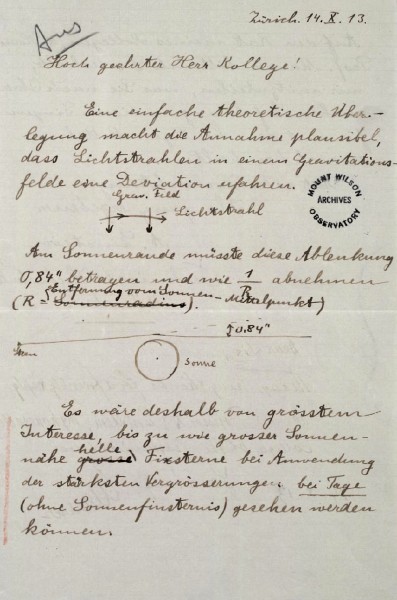 Zürich. 14. X. 13.
Hoch geehrter Herr Kollege!
Eine einfache theoretische Über-
legung macht die Annahme plausibel,
dass Lichtstrahlen in einem Gravitations-
felde eine Deviation erfahren.
Grav. Feld
Lichtstrahl
MOUNT WILSON
ARCHIVES
OBSERVATORY
Am Sonnenrande müsste diese Ablenkung
0,84" betragen und wie 1/R abnehmen
Entfernung vom Sonnen-Mittelpunkt
(R = Sonnenradius).
0.84"
Stern
Sonne
Es wäre deshalb von grösstem
Interesse, bis zu wie grosser Sonnen-
helle
nähe grosse Fixsterne bei Anwendung
der stärksten Vergrösserungen bei Tage
(ohne Sonnenfinsternis) gesehen werden
können.